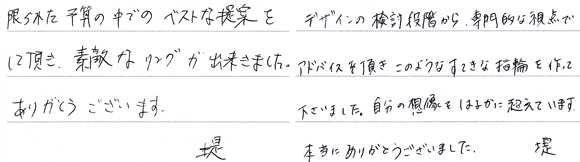 限られた予算の中でのベストな提案を
して頂き、素敵なリングが出来きました。
ありがとうございます.
堤
デザインの検討段階から、専門的な視点で
アドバイスを頂きこのようなすてきな指輪を作って
下さいました。自分の想像をはるかに超えています.
本当にありがとうございました.
堤